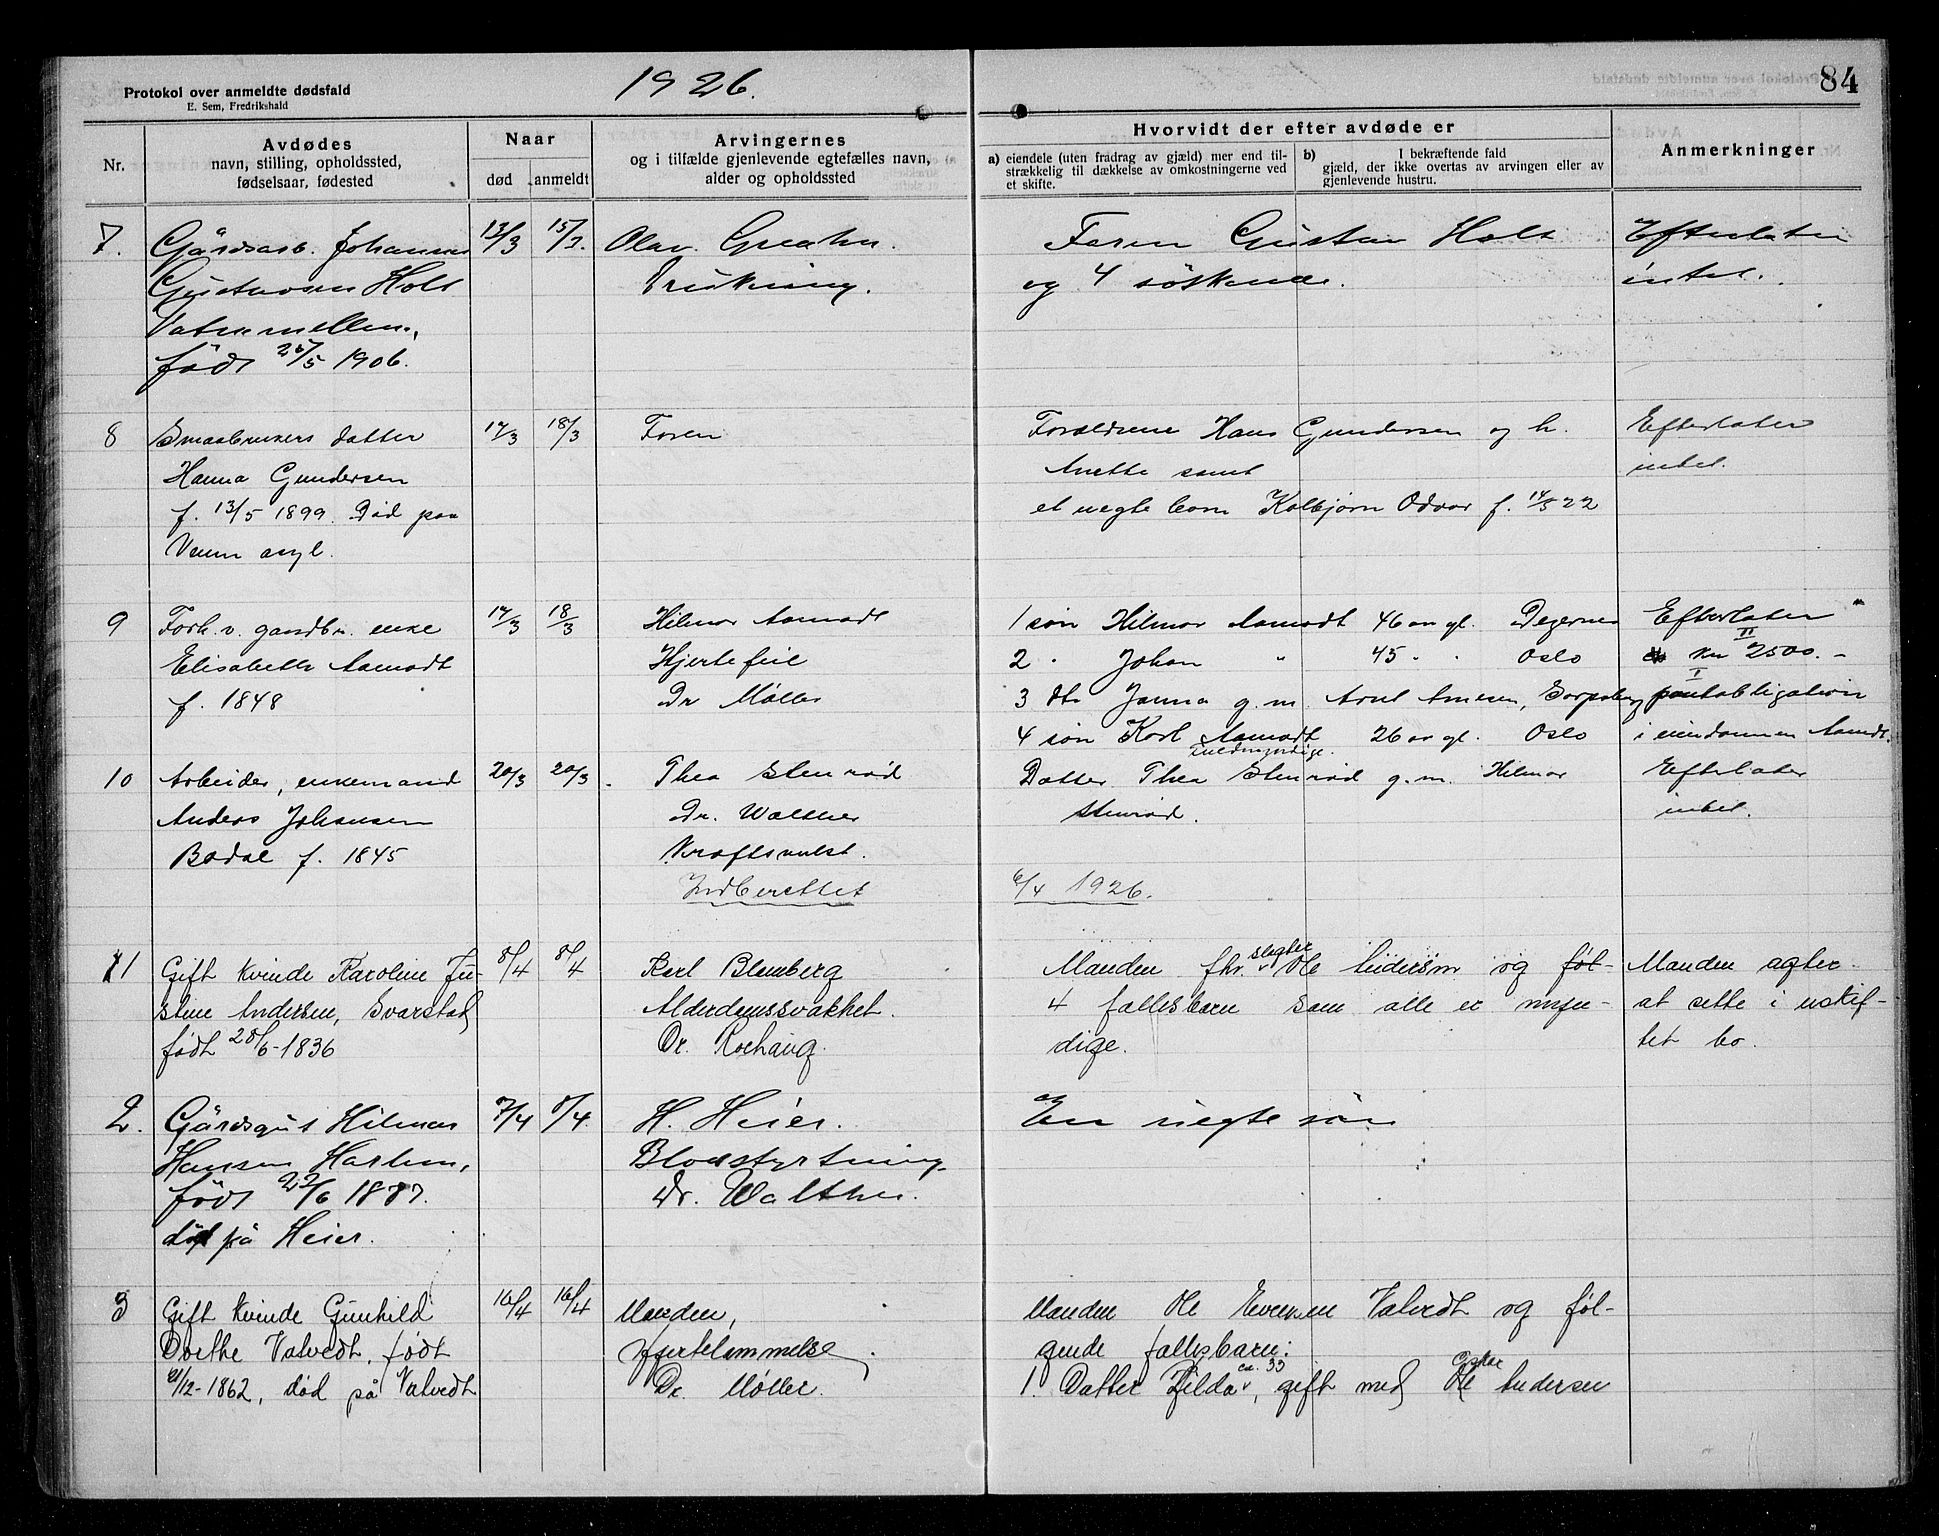 Protokol over anmeldte dødsfald
E. Sem, Fredrikshald
1926.
84
Nr.
Avdødes
navn, stilling, opholdssted,
fødselsaar, fødested
Naar
død
anmeldt
Arvingernes
og i tilfælde gjenlevende egtefælles navn,
alder og opholdssted
Hvorvidt der efter avdøde er
a) eiendele (uten fradrag av gjæld) mer end til-
strækkelig til dækkelse av omkostningerne ved
et skifte.
b) I bekræftende fald
gjæld, der ikke overtas av arvingen eller av
gjenlevende hustru.
Anmerkninger
7.
Gårdsarb. Johannes
Gustavsen Holt
født 25/5 1906.
13/3
15/3.
Olav
Drukning.
Faren Gustav Holt
og 4 søskende.
Efterlater
intet.
8
Smaabrukers datter
Hanna Gundersen
f. 13/5 1899. Død paa
Veum asyl.
14/3
18/3
Faren
Forældrene Hans Gundersen og h.
Anette samt
et uegte barn Kolbjørn Odvar f. 14/5 22
Efterlater
intet.
9
Forh. v. gaardbr. enke
Elisabeth Aamodt
f. 1848
14/3
18/3
Hilmar Aamodt
Hjertefeil
Dr Møller
1 søn Hilmar Aamodt 46 aar gl. Degernes
2 " Johan " 45 " " Oslo
3 dtr Janna g.m. Arnt Arnesen, Sarpsborg
4 søn Karl Aamodt 26 aar gl. Oslo
Efterlater
II
kr 2500.-
I
pantobligation
i eiendommen Aamodt.
10
Arbeider, enkemand
Anders Johansen
Bodal f. 1845
20/3
20/3.
Thea Stenrød
Dr. Walther
Kræftsvulst.
fuldmyndige.
Datter Thea Stenrød g.m. Hilmar
Stenrød.
Efterlater
intet.
Indberettet
6/4 1926.
11
Gift kvinde Karoline Ju-
stine Andersen, Svarstad
født 28/6-1836
8/4
8/4
Karl Blomberg
Alderdomssvakhet.
Dr. Rochaug.
Manden fhv. slagter Ole Andersen og føl-
4 fællesbarn som alle er myn-
dige.
Manden agter
at sitte i uskif-
tet bo.
2.
Gårdsgut Hilmar
Hansen Harlem,
født 22/6 1887.
død på Heier.
7/4
8/4.
H. Heier.
Blodstyrtning.
Dr. Walther.
En uegte søn
3
Gift kvinde Gunhild
Dorthe Vatvedt, født
/12-1862, død på Vatvedt
16/4
16/4
Manden,
Hjertelammelse.
Dr. Møller.
Manden Ole Evensen Vatvedt og føl-
gende fællesbarn:
1. Datter Hilda ca. 33, gift med Oskar Andersen